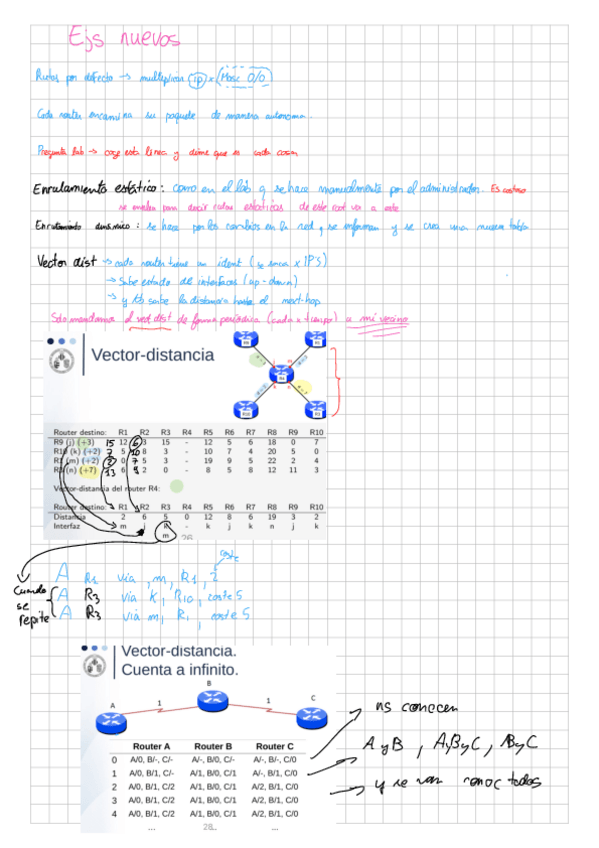 Ejs nuevos
Rutas por defecto → multiplicar (IP) × (Masc 0/0)
Cada router encamina su paquete de manera autonoma.
Pregunta lab → coge esta linea y dime que es cada cosa
Enrutamiento estático: como en el lab q se hace manualmente por el administrador. Es costoso
se emplea para decir rutas estáticas de este root va a este
Enrutamiento dinámico: se hace por los cambios en la red, se informan y se crea una nueva tabla
Vector dist → cada router tiene un ident (se saca x IP's)
→ Sabe estado de interfaces (up-down)
→ y tb sabe la distancia hasta el next-hop
Solo mandamos el vect dist de forma periódica (cada x tiempo) a mi vecino
Vector-distancia
Router destino: R1 R2 R3 R4 R5 R6 R7 R8 R9 R10
R9 (j) (+3) 15 12 6 3 15 - 12 5 6 18 0 7
(k) (+2) 7 5 10 8 3 - 10 7 4 20 5 0
(m) (+2) 2 0 7 5 3 - 19 9 5 22 2 4
(n) (+7) 13 6 9 2 0 - 8 5 8 12 11 3
Vector-distancia del router R4:
Router destino: R1 R2 R3 R4 R5 R6 R7 R8 R9 R10
Distancia 2 6 5 0 12 8 6 19 3 2
Interfaz m j k - k j k n j k
m
26
coste
A R1 via m, R1, 2
Cuando se repite
A R3 via k, R10, coste 5
A R3 via m, R1, coste 5
Vector-distancia.
Cuenta a infinito.
A 1 B 1 C
Router A Router B Router C
0 A/0, B/-, C/- A/-, B/0, C/- A/-, B/-, C/0
1 A/0, B/1, C/- A/1, B/0, C/1 A/-, B/1, C/0
2 A/0, B/1, C/2 A/1, B/0, C/1 A/2, B/1, C/0
3 A/0, B/1, C/2 A/1, B/0, C/1 A/2, B/1, C/0
4 A/0, B/1, C/2 A/1, B/0, C/1 A/2, B/1, C/0
... 28 ... ...
ns conocen
A y B, A,B y C, B y C
y se van conoc todos